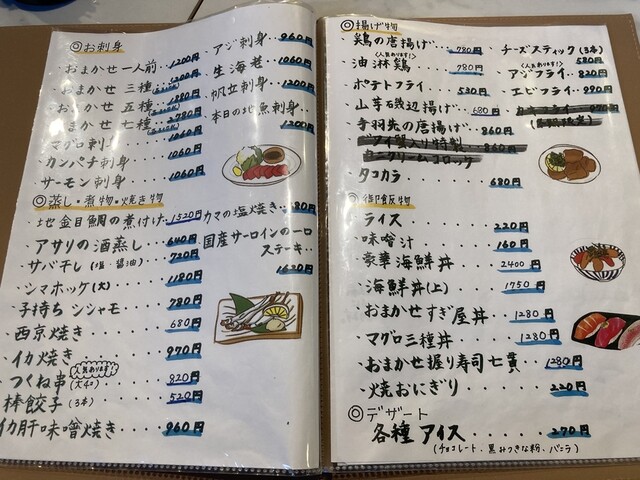 ◎お刺身
・おまかせ一人前‥1200円
・おまかせ 三種
・おまかせ 五種 1980円
おまかせ 七種 2780円
・マグロ刺身 1060円
・カンパチ刺身 1060円
・サーモン刺身 1060円
・アジ刺身‥960円
・生海老‥1060円
・帆立刺身‥1200円
・本日の地魚刺身
1200円
◎蒸し・煮物・焼き物
・地金目鯛の煮付け‥1520円
・アサリの酒蒸し‥‥640円
・サバ干し(塩・醤油)‥720円
・シマホッケ(大)‥‥1180円
・子持ちシシャモ‥‥780円
・西京焼き‥‥680円
・イカ焼き‥‥970円
人気あります!
・つくね串(大4コ)‥‥820円
・棒餃子(3本)‥‥520円
イカ肝味噌焼き‥‥960円
・カマの塩焼き‥680円
・国産サーロインの一口
ステーキ‥
1620円
◎揚げ物
・鶏の唐揚げ‥‥780円
・油淋鶏‥‥780円
・ポテトフライ‥‥530円
・山芋磯辺揚げ‥680円
・手羽先の唐揚げ‥860円
860円
・タコカラ‥‥680円
・チーズスティック(3本)
580円
人気あります!
・アジフライ‥820円
・エビフライ‥990円
・カキフライ
◎御飯物
・ライス‥‥220円
・味噌汁‥‥160円
・豪華海鮮丼‥‥2400円
・海鮮丼(上)‥‥1750円
・おまかせすぎ屋丼‥‥1280円
・マグロ三種丼‥‥1280円
・おまかせ握り寿司七貫‥1280円
・焼おにぎり‥‥220円
◎デザート
各種アイス‥‥270円
(チョコレート、黒みつきな粉、バニラ)